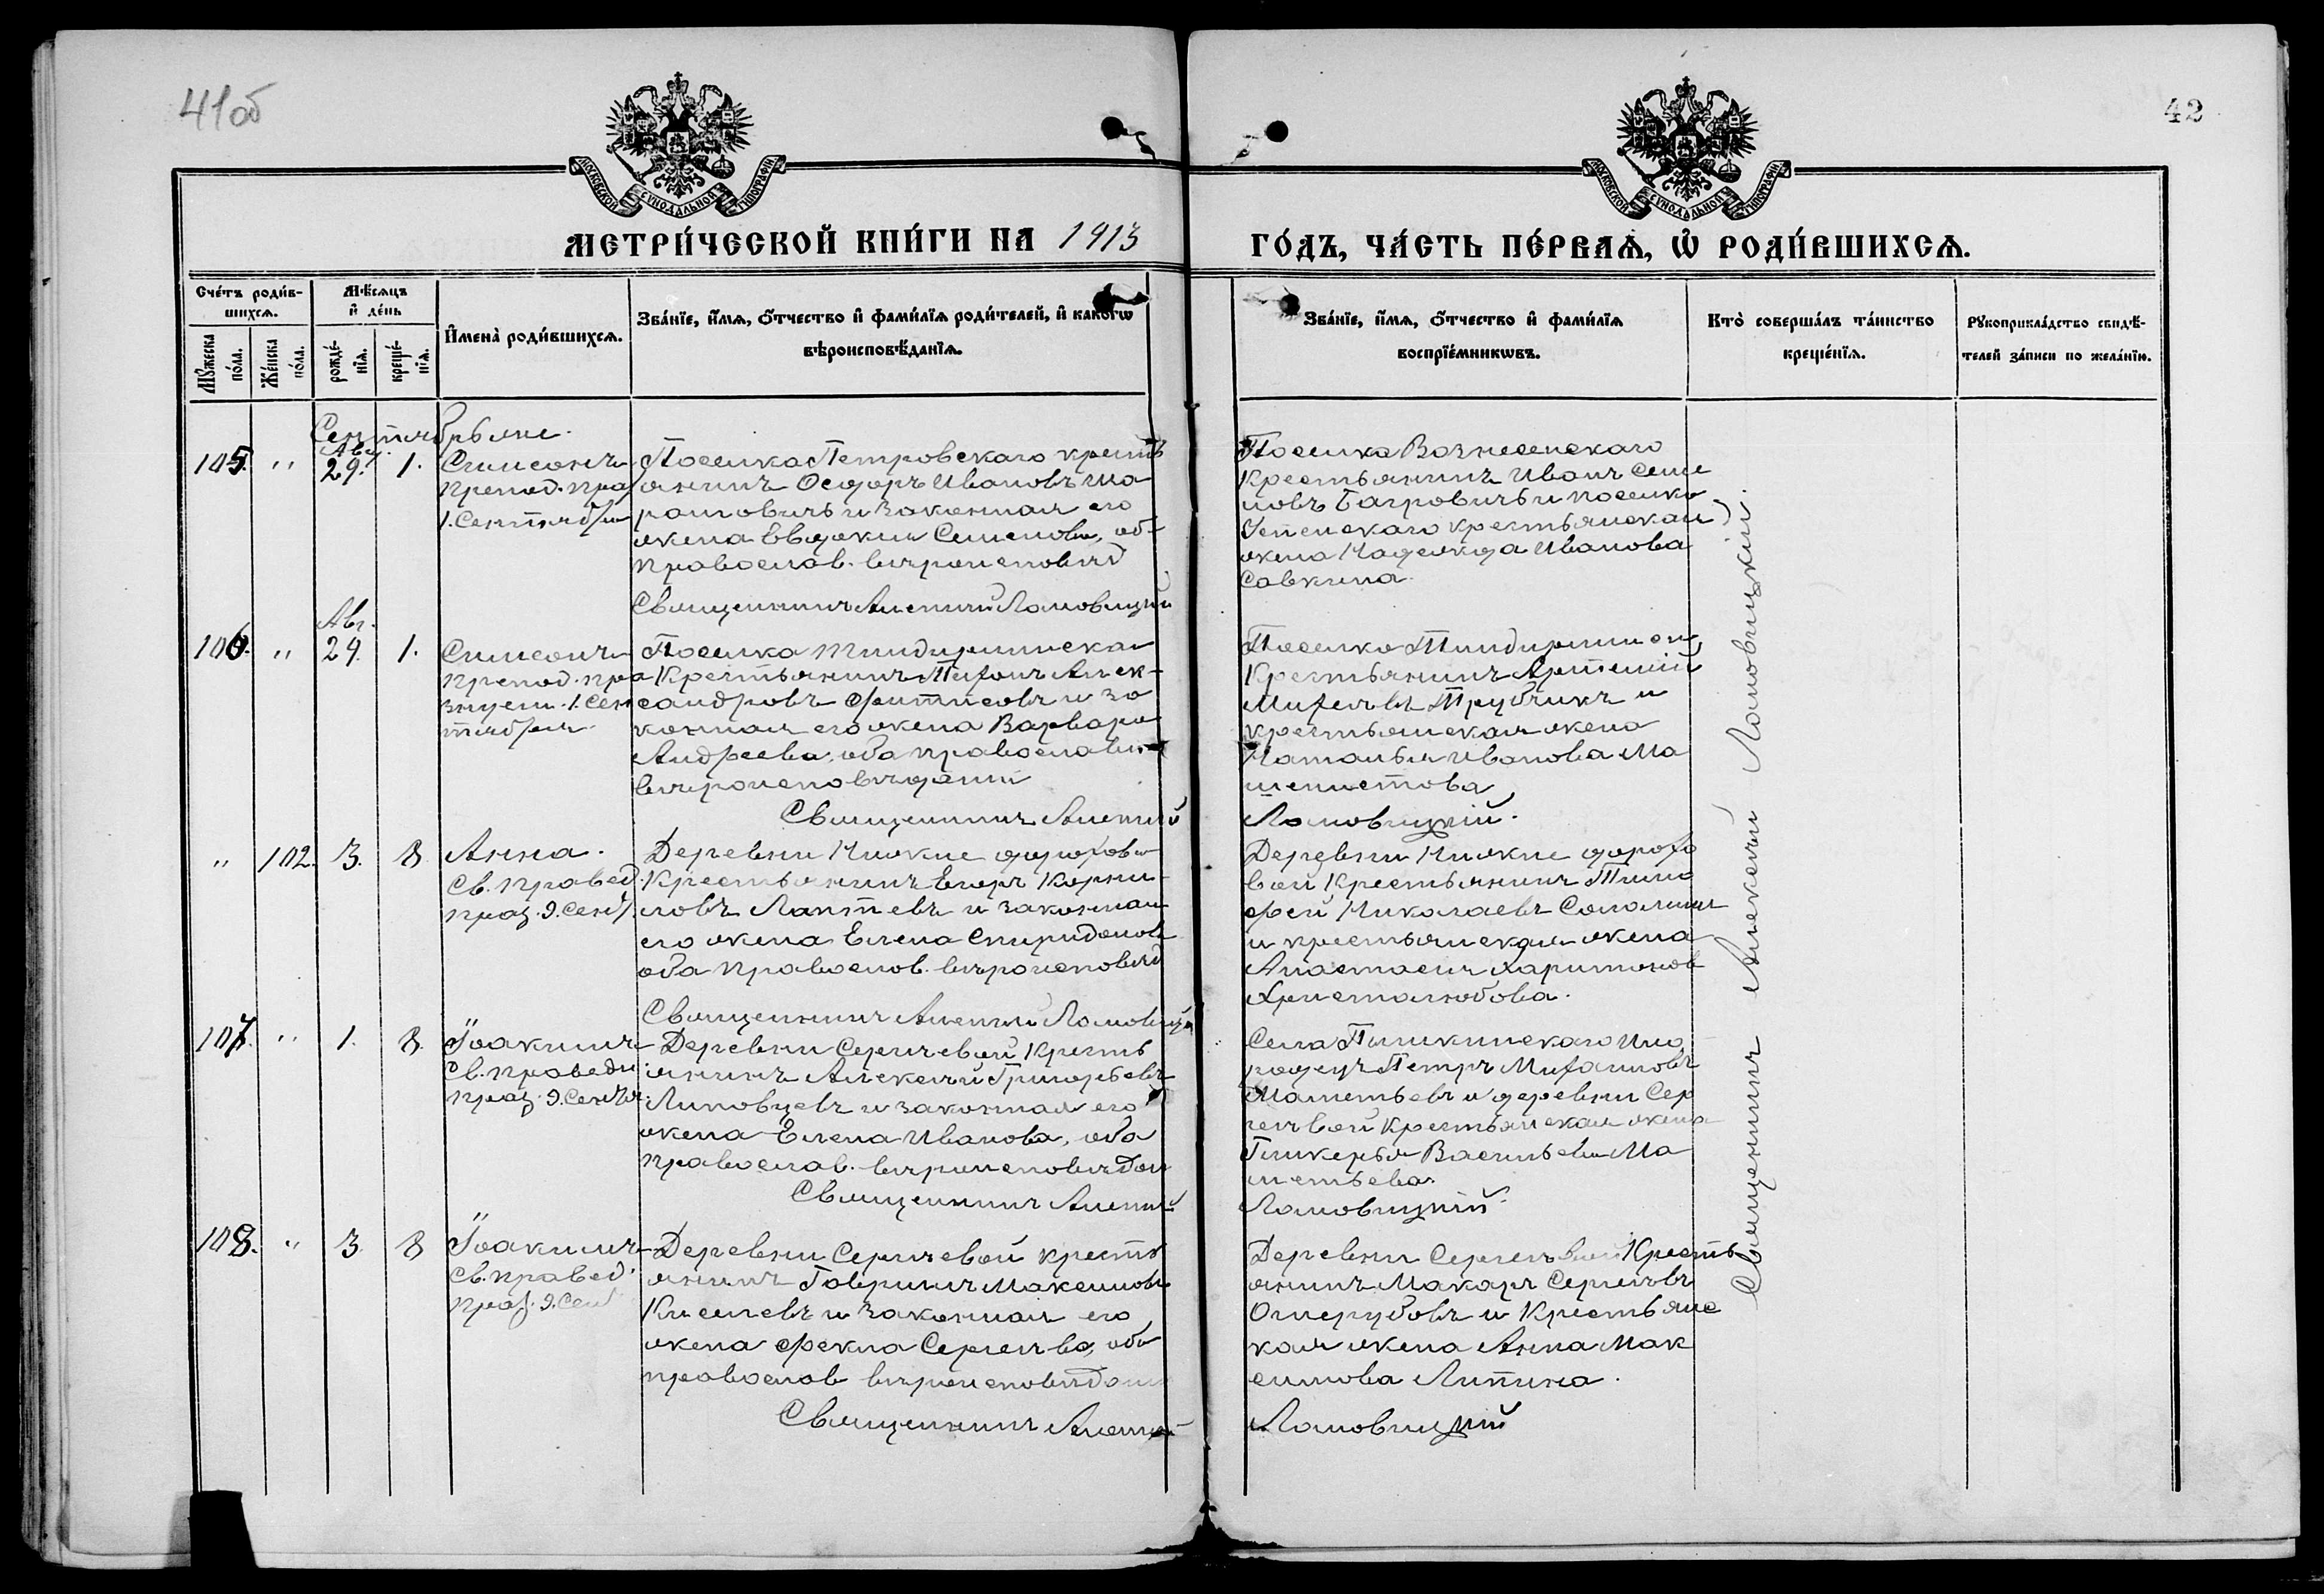 41об
42
МОСКОВСКОЙ СѴНОДАЛЬНОЙ ТИПОГРАФІИ
МОСКОВСКОЙ СѴНОДАЛЬНОЙ ТИПОГРАФІИ
МЕТРИ́ЧЕСКОЙ КНИ́ГИ НА 1913
ГО́ДЪ, ЧА́СТЬ ПЕ́РВАѦ, Ѡ҆ РОДИ́ВШИХСѦ.
Сче́тъ роди́в-
шихсѧ.
Мѣ́сѧцъ
и҆ де́нь
Мꙋ́жеска
по́ла.
Же́нска
по́ла.
рожде́-
нїѧ.
креще́-
нїѧ.
И҆мена̀ роди́вшихсѧ.
Зва́нїе, и҆́мѧ, ѻ҆́тчество и҆ фами́лїѧ роди́телей, и҆ како́гѡ
вѣроисповѣ́данїѧ.
Зва́нїе, и҆́мѧ, ѻ҆́тчество и҆ фами́лїѧ
воспрїе́мникѡвъ.
Кто̀ соверша́лъ та́инство
креще́нїѧ.
Рꙋкоприкла́дство свидѣ́-
телей за́писи по жела́нїю.
Сентябрь мес.
Авг.
105. " 29. 1. Симеонъ
препод. праз
1. Сентября
Поселка Петровскаго кресть
янинъ Ѳеодоръ Ивановъ Ша
рамовичъ и законная его
жена Евдокия Семенова, об
православ. вѣроисповѣд
Священникъ Алексий Ломовицкий
Поселка Вознесенскаго
Крестьянинъ Иванъ Семе
новъ Багровичъ и поселка
Успенскаго крестьянская
жена Надежда Иванова
Савкина.
Авг.
106. " 29. 1. Симеонъ
препод. пра
знуем. 1. Сен
тября.
Поселка
Крестьянинъ Тихонъ Алек-
сандровъ Фитисовъ и за
конная его жена Варвара
Андреева, оба православн
вѣроисповѣдания
Священникъ Алексий
Поселка
Крестьянинъ Артемий
Михеевъ Трубчикъ и
крестьянская жена
Наталья Иванова Ма
шенистова
Ломовицкій.
" 102. 3. 8. Анна.
Св. правед.
праз. 9. Сент.
Деревни Нижне дорохова
Крестьянинъ Егоръ Корни
ловъ Лаптевъ и законная
его жена Елена Спиридонов
оба православ. вѣроисповѣд
Священникъ Алексий Ломовицк
Деревни Нижне дорохо
вой Крестьянинъ Тимо
фей Николаевъ Соломин
и крестьянская жена
Анастасия Харитонов
Христолюбова.
107. " 1. 8. Iоакимъ
Св. праведн
праз. 9. Сентя.
Деревни Сергеевой Кресть
янинъ Алексѣй Григорьевъ
Липовцевъ и законная его
жена Елена Иванова, оба
православ. вѣроисповѣдан
Священникъ Алексий
Села Пышкинскаго Ино
родецъ Петръ Михаиловъ
Маметьевъ и деревни Сер
геевой Крестьянская жена
Гликерья Васильева Ма
метьева.
Ломовицкій
108. " 3. 8 Iоакимъ
Св. правед.
праз. 9. Сент
Деревни Сергеевой кресть
янинъ Гавриилъ Максимовъ
Киселевъ и законная его
жена Фекла Сергеева, оба
православ вѣроисповѣдания
Священникъ Алексий
Деревни Сергеевой Кресть
янинъ Макаръ Сергеевъ
и Крестьянс
кая жена Анна Мак
симова Липина.
Ломовицкий
Священникъ Алексѣй Ломовицкій.